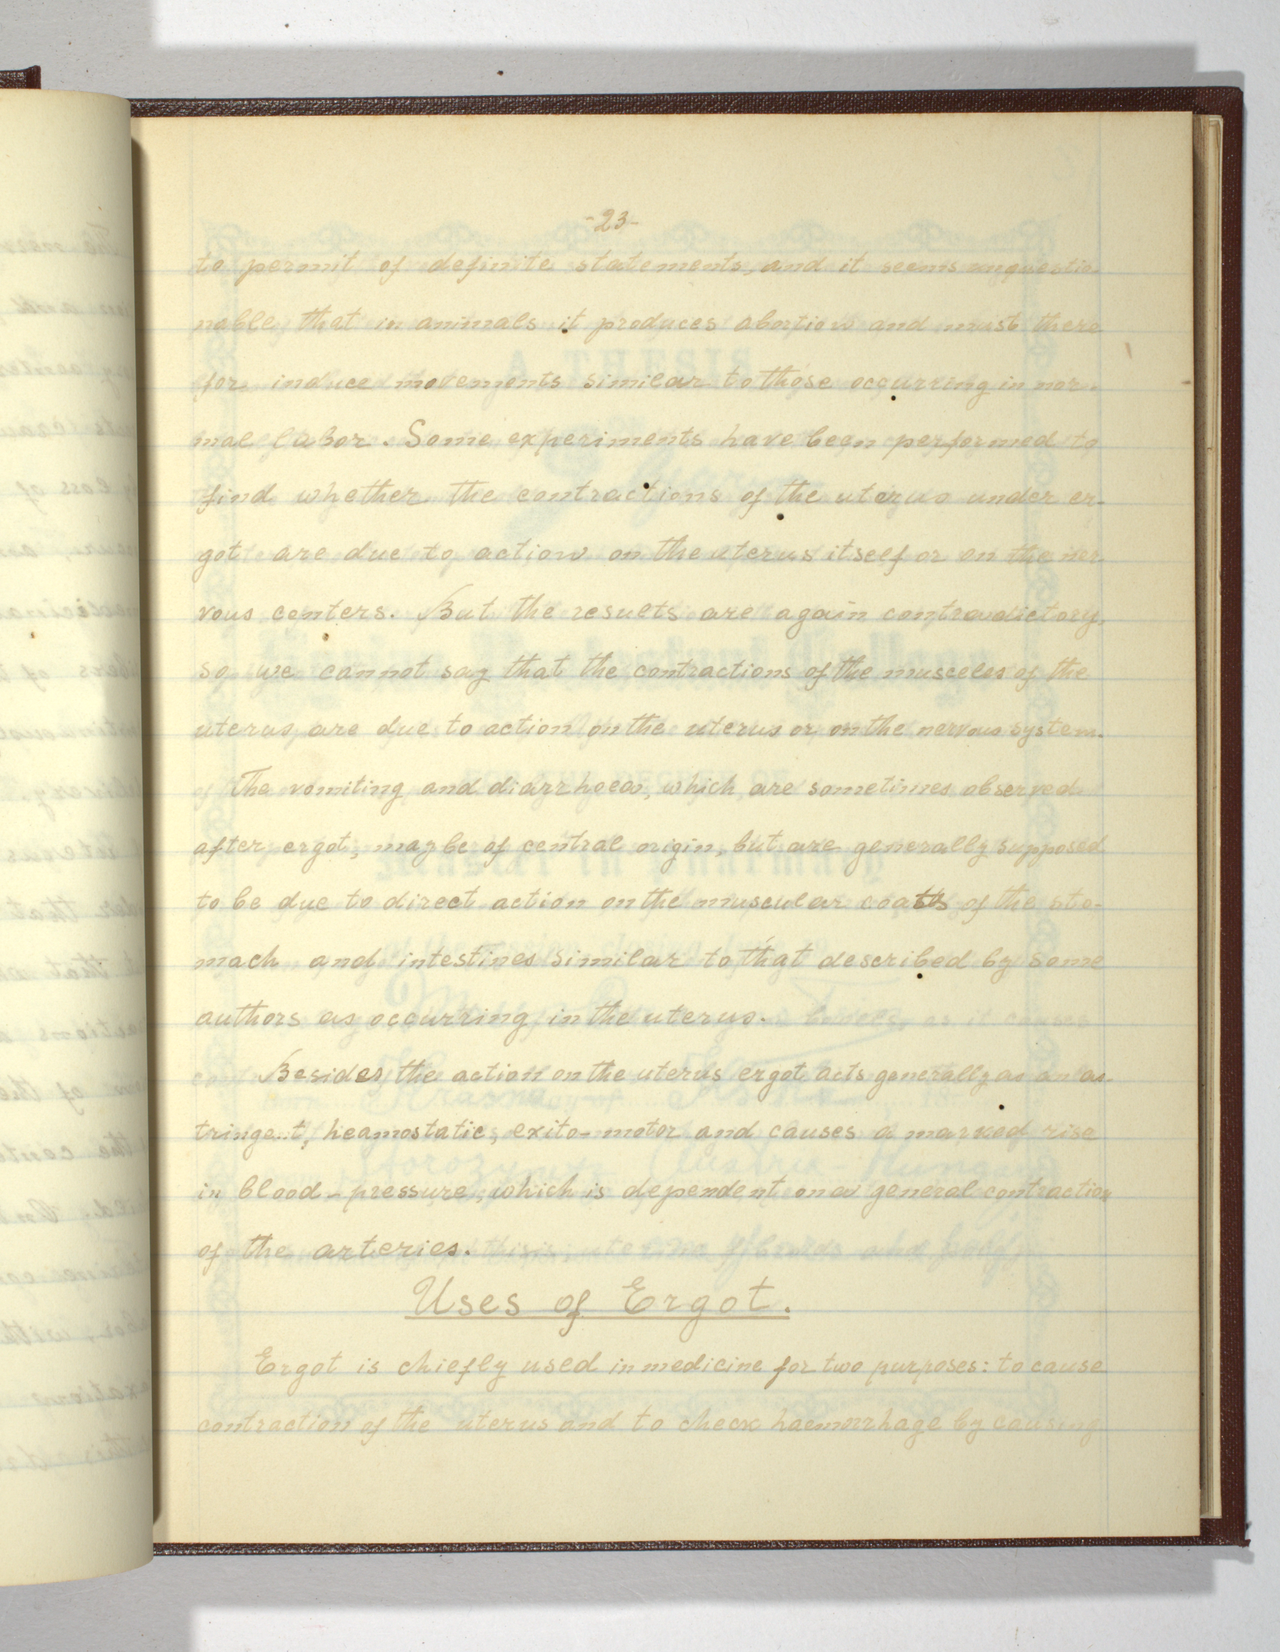 -23-
to permit of definite statements, and it seems unquestio-
nable that in animals it produces abortion and must there
for induce movements similar to those occurring in nor-
mal labor. Some experiments have been performed to
find whether the contractions of the uterus under er-
got are due to action on the uterus itself or on the ner
vous centers. But the results are again contradictory,
so we cannot say that the contractions of the musceles of the
uterus are due to action on the uterus or on the nervous system.
The vomiting and diarrhoea, which are sometimes observed
after ergot, may be of central origin, but are generally supposed
to be due to direct action on the muscular coats of the sto-
mach and intestines similar to that described by some
authors as occurring in the uterus.
Besides the action on the uterus ergot acts generally as an as-
tringent, heamostatic, exito-motor and causes a marked rise
in blood-pressure, which is dependent on a general contraction
of the arteries.
Uses of Ergot.
Ergot is chiefly used in medicine for two purposes: to cause
contraction of the uterus and to check haemorrhage by causing